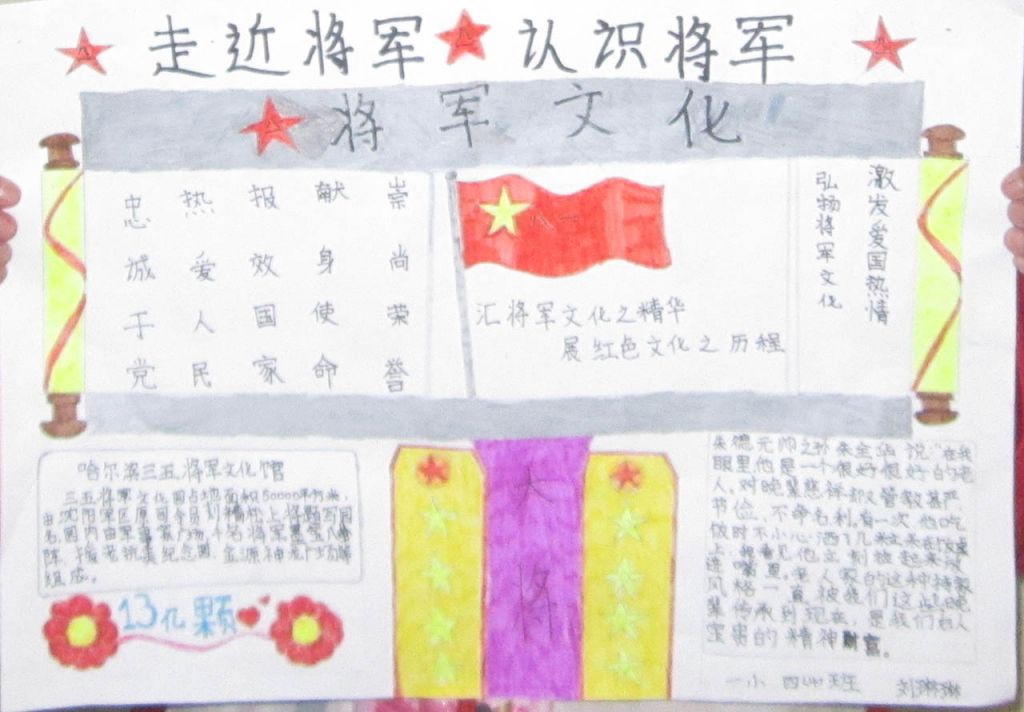 走近将军 认识将军
将军文化
忠诚于党
热爱人民
报效国家
献身使命
崇尚荣誉
八一
汇将军文化之精华
展红色文化之历程
激发爱国热情
弘扬将军文化
哈尔滨三五将军文化馆
三五将军文化园占地面积50000平方米,
由沈阳军区原司令员刘精松上将题写园
组成。
13亿颗
大将
朱德元帅之孙朱全华说:"在我
眼里他是一个很好很好的老
人。对晚辈慈祥却又管教甚严
节俭,不争名利,有一次他吃
饭时不小心洒了几粒米在饭桌
上,我看见他立刻捡起来放
进嘴里。老人家的这种持家
风格一直被我们这些晚
辈传承到现在,是我们后人
宝贵的精神财富。
一小 四(4)班 刘琳琳